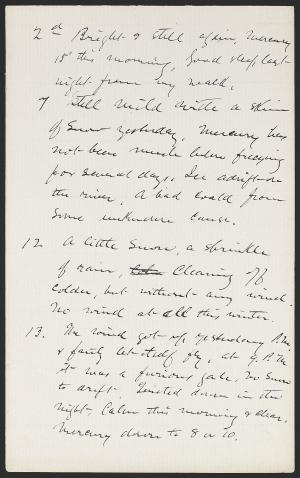 2d Bright & still again, mercury
15 this morning, Good sleep last
night from my walk.
7 Still mild with a skim
of snow yesterday, mercury has
not been much below freezing
for several days, Ice adrift on
the river, A bad cold from
some unknown cause.
12 A little snow, a sprinkle
of rain, Clearing off
colder, but without any wind.
No wind at all this winter.
13. The wind got up yesterday P.M
& fairly let itself off, at 9 P.M
it was a furious gale, no snow
to drift. Quieted down in the
night, Calm this morning & clear.
Mercury down to 8 or 10.